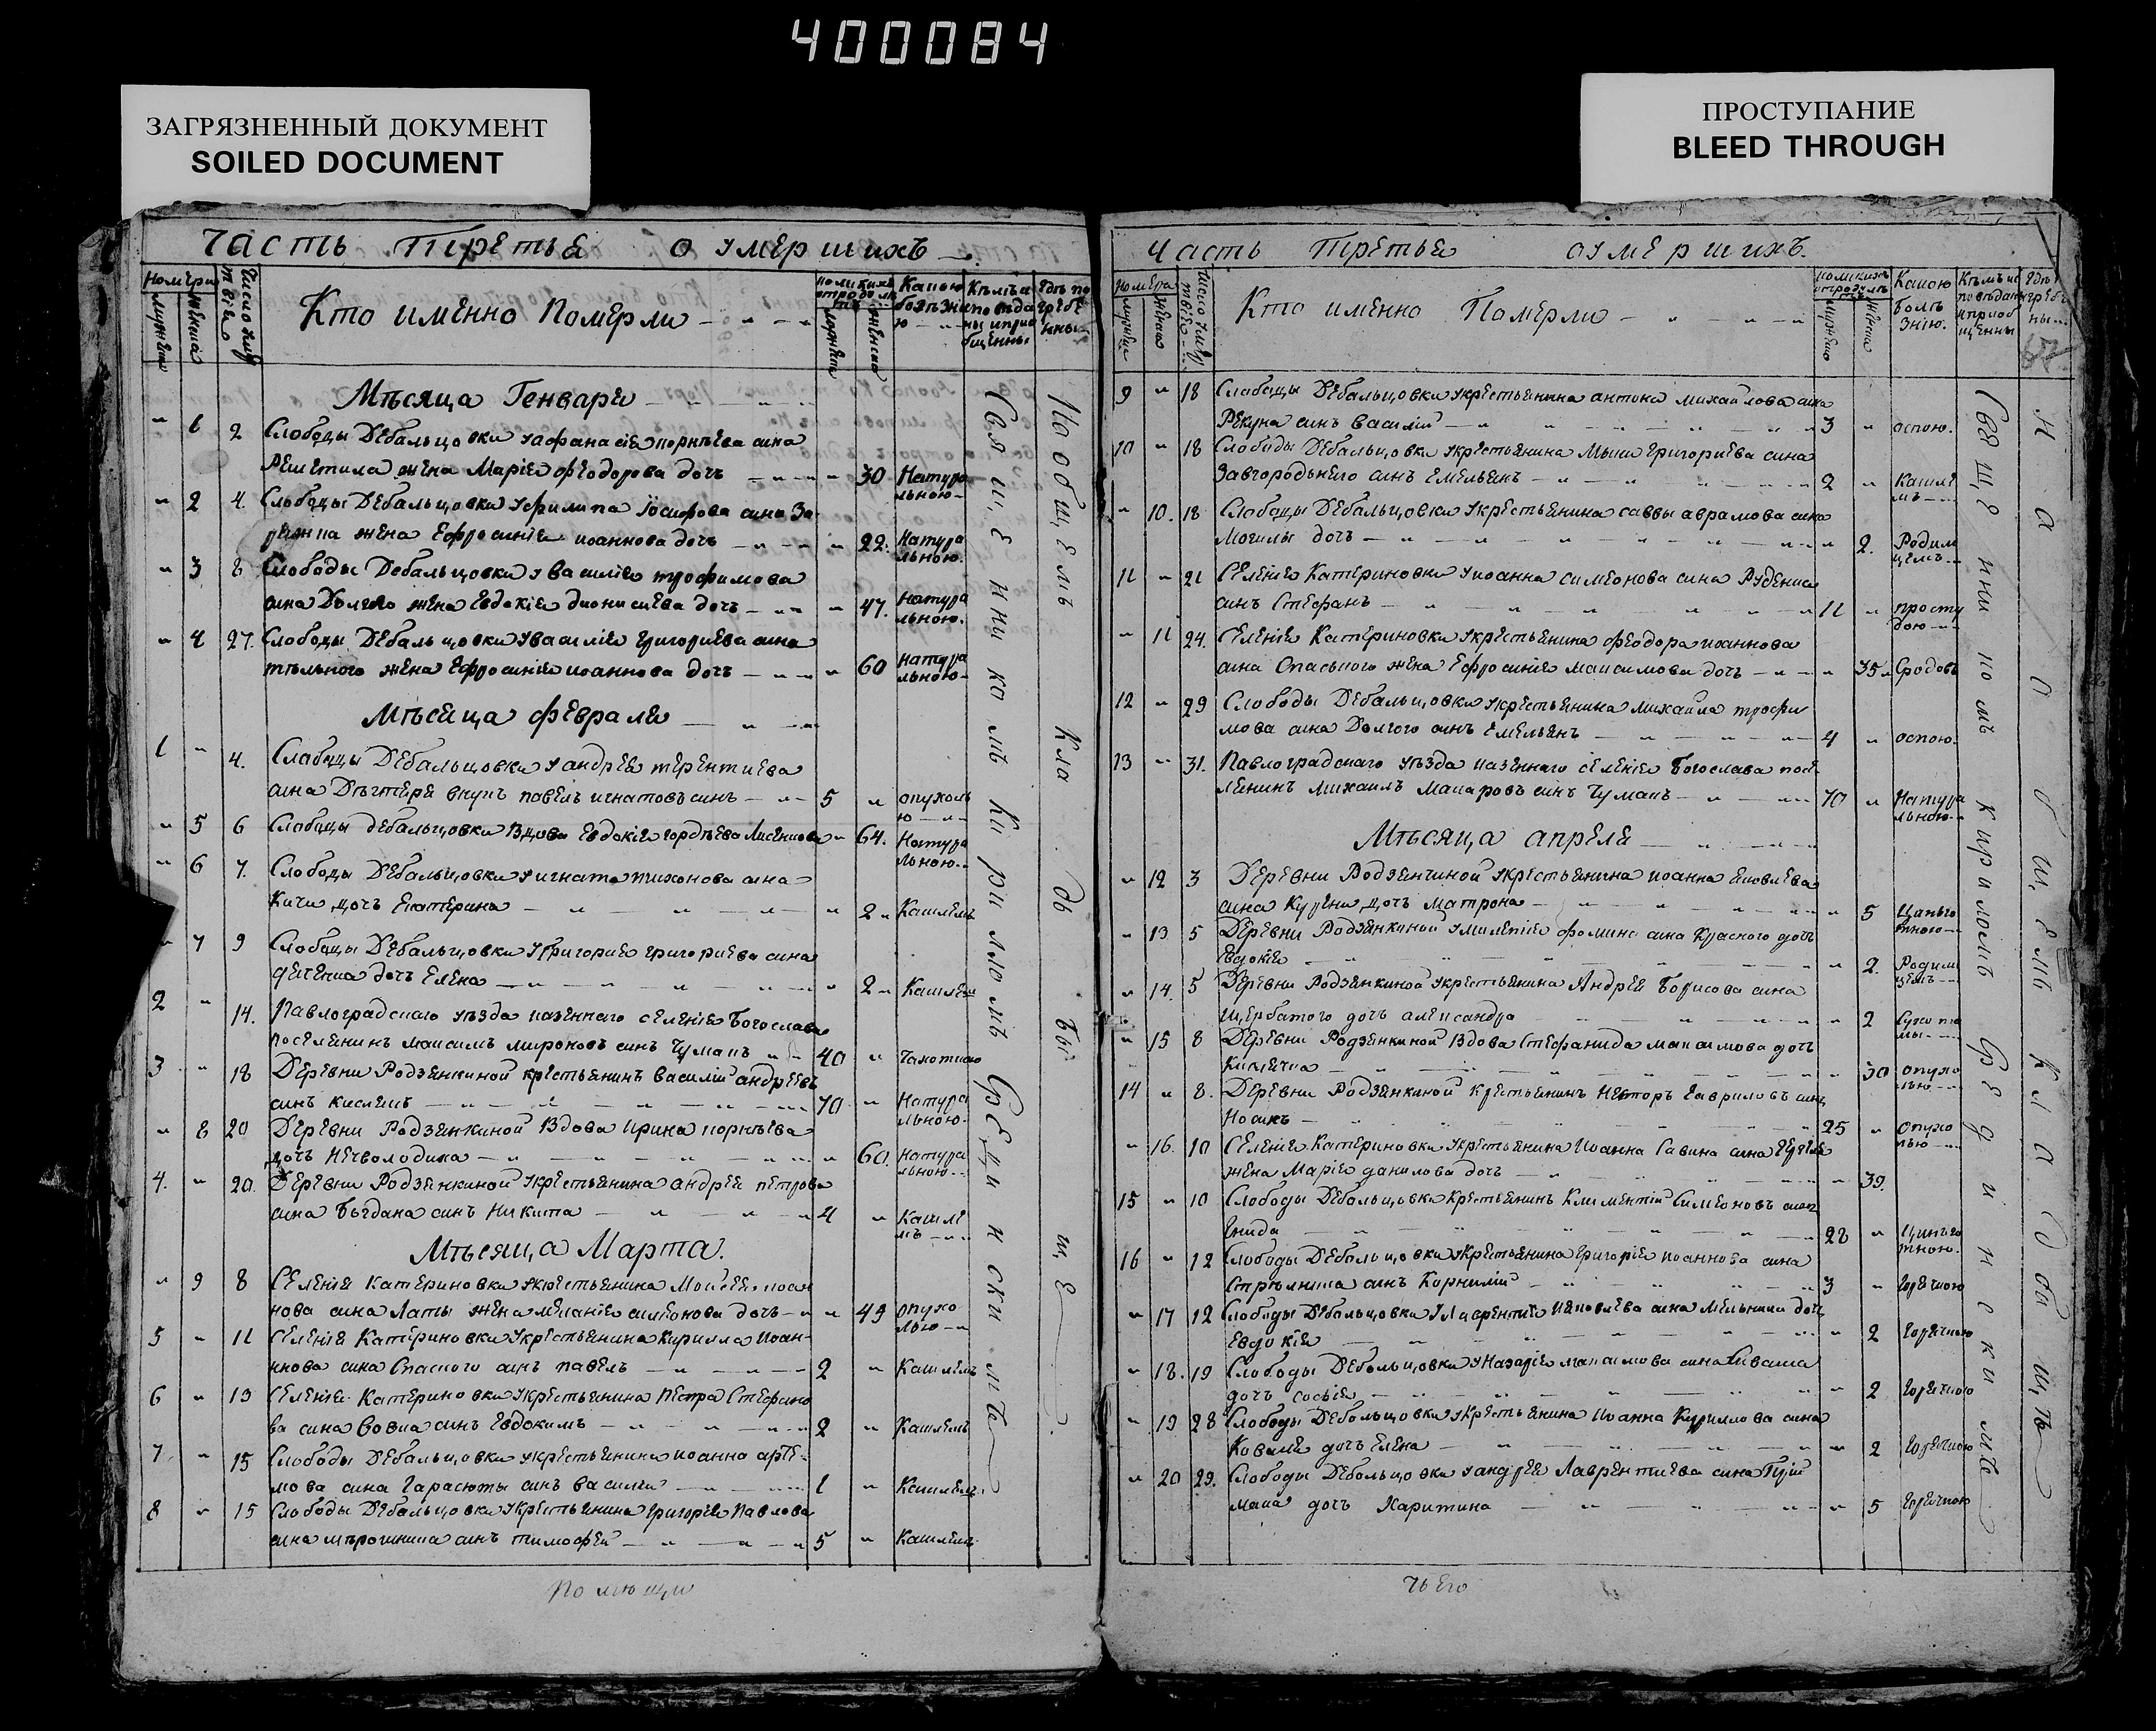 400084
ЗАГРЯЗНЕННЫЙ ДОКУМЕНТ
SOILED DOCUMENT
ПРОСТУПАНИЕ
BLEED THROUGH
Часть Третья о умершихъ
Номера
Кто именно Померли
Мѣсяца Генваря
" 1 2 Слободы Дебальцовки у афанасія корнѣева сина
Решетила жена Марія феодорова дочь " 30 Натура
льною
" 2 4. Слободы Дебальцовки у филипа Іосифова сина
жена Ефросинія иоаннова дочь " 22. Натура
льною.
" 3 8 Слободы Дебальцовки у василія трофимова
сина Долгого жена Евдокія дионисиева дочь " 47. натура
льною.
" 4 27. Слободы Дебальцовки у василія григориева сина
жена Ефросинія иоаннова дочь " 60 натура
льною
Мѣсяца февраля
1 " 4. Слободы Дебальцовки у андрея терентиева
сина Дѣгтяря внукъ павелъ игнатовъ синъ 5 " опухоль
ю
" 5 6 Слободы дебальцовки Вдова Евдокія гордѣева " 64. Натура
льною
" 6 7. Слободы Дебальцовки у игната тихонова сина
дочь Екатерина " 2 " Кашлемъ
" 7 9 Слободы Дебальцовки у Григория григориева сина
дочь Елена " 2 " Кашлем
2 " 14. Павлоградскаго уѣзда казеннаго селенія Богослава
поселянинъ максимъ мироновъ синъ Чумакъ 40 " чахоткою
3 " 18 Деревни Родзянкиной крестьянинъ василій андреевъ
синъ 70 " Натура
льною.
" 8 20 Деревни Родзянкиной Вдова ирина корнѣева
дочь Нечволодина " 60. натура
льною
4. " 20. Деревни Родзянкиной у крестьянина андрея петрова
сина Богдана синъ Никита 4 " Кашле
мъ
Мѣсяца Марта.
" 9 8 Селенія Катериновки у крестьянина Моисея иоан
нова сина Латы жена меланія симеонова дочь " 49 опухо
лью
5 " 11 Селенія Катериновки у крестьянина Кирилла Иоан-
нова сина Спаского синъ павелъ 2 " Кашлемъ
6 " 13 Селенія Катериновки у крестьянина Петра Стефано
ва сина Вовка синъ Евдокимъ 2 " Кашлемъ
7. " 15 Слободы Дебальцовки у крестьянина иоанна арте-
мова сина Гарасюты синъ василій 1 " Кашлемъ
8 " 15 Слободы Дебальцовки у крестьянина григорія Павлова
сина мѣрошника синъ тимофей 5 " Кашлемъ
Священникомъ Кириломъ Средински мъ
На общемъ Кладбыще
Помющи
Часть Третья о умершихъ.
Номера
Кто именно Померли
Какою
болѣ
знію.
9 " 18 Слободы Дебальцовки у крестьянина антона михайлова сина
Рекуна синъ василій 3 " оспою.
10 " 18 Слободы Дебальцовки у крестьянина Григориева сина
Завгороднего синъ Емельянъ 2 " Кашле
мъ
" 10. 18 Слободы Дебальцовки у крестьянина саввы аврамова сина
Могилы дочь " 2. Родим
цемъ
11 " 21 Селенія Катериновки у иоанна симеонова сина Руденка
синъ Стефанъ 11 " просту
дою
" 11 24. Селенія Катериновки у крестьянина феодора иоаннова
сина Спаського жена Ефросинія максимова дочь " 35 " Сродовъ
12 " 29 Слободы Дебальцовки у крестьянина михаила трофи
мова сина Долгого синъ Емельянъ 4 " оспою.
13 " 31. Павлоградскаго уѣзда казеннаго селенія Богослава посе-
лянинъ михаилъ макаровъ синъ Чумакъ 70 " Натура
льною
Мѣсяца апреля
" 12 3 Деревни Родзянкиной у крестьянина иоанна яковлева
сина дочь Матрона " 5 Цынго
тною
" 13 5 Деревни Родзянкиной фомина сина Красного дочь
Евдокія " 2. Родим
цемъ
" 14. 5 Деревни Родзянкиной у крестьянина Андрея Борисова сина
Щербатого дочь александра " 2
" 15 8 Деревни Родзянкиной Вдова Стефанида максимова дочь
" 30 опухо
лью
14 " 8. Деревни Родзянкиной Крестьянинъ Несторъ гавриловъ синъ
Носикъ 25 " опухо
лью
" 16. 10 Селенія Катериновки у крестьянина Иоанна Савина сина
жена Марія данилова дочь " 39.
15 " 10 Слободы Дебальцовки Крестьянинъ Климентій Симеоновъ синъ
Гнида 28 " Цинго
тною.
16 " 12 Слободы Дебальцовки у крестьянина григорія иоаннова сина
Стрельника синъ Корнилій 3 " горячкою
" 17 12 Слободы Дебальцовки у Лаврентия яковлева сина Мельника дочь
Евдокія " 2 горячкою
" 18. 19 Слободы Дебальцовки у Назарія максимова сина Сиваша
дочь софія " 2 горячкою
" 19 28 Слободы Дебальцовки у крестьянина Иоанна Кириллова сина
Коваля дочь Елена " 2 горячкою
" 20 29. Слободы Дебальцовки у андрея Лаврентиева сина
дочь Харитина " 5 горячкою
Священникомъ Кириломъ Срединскимъ
На общемъ Кладбищѣ
чьего